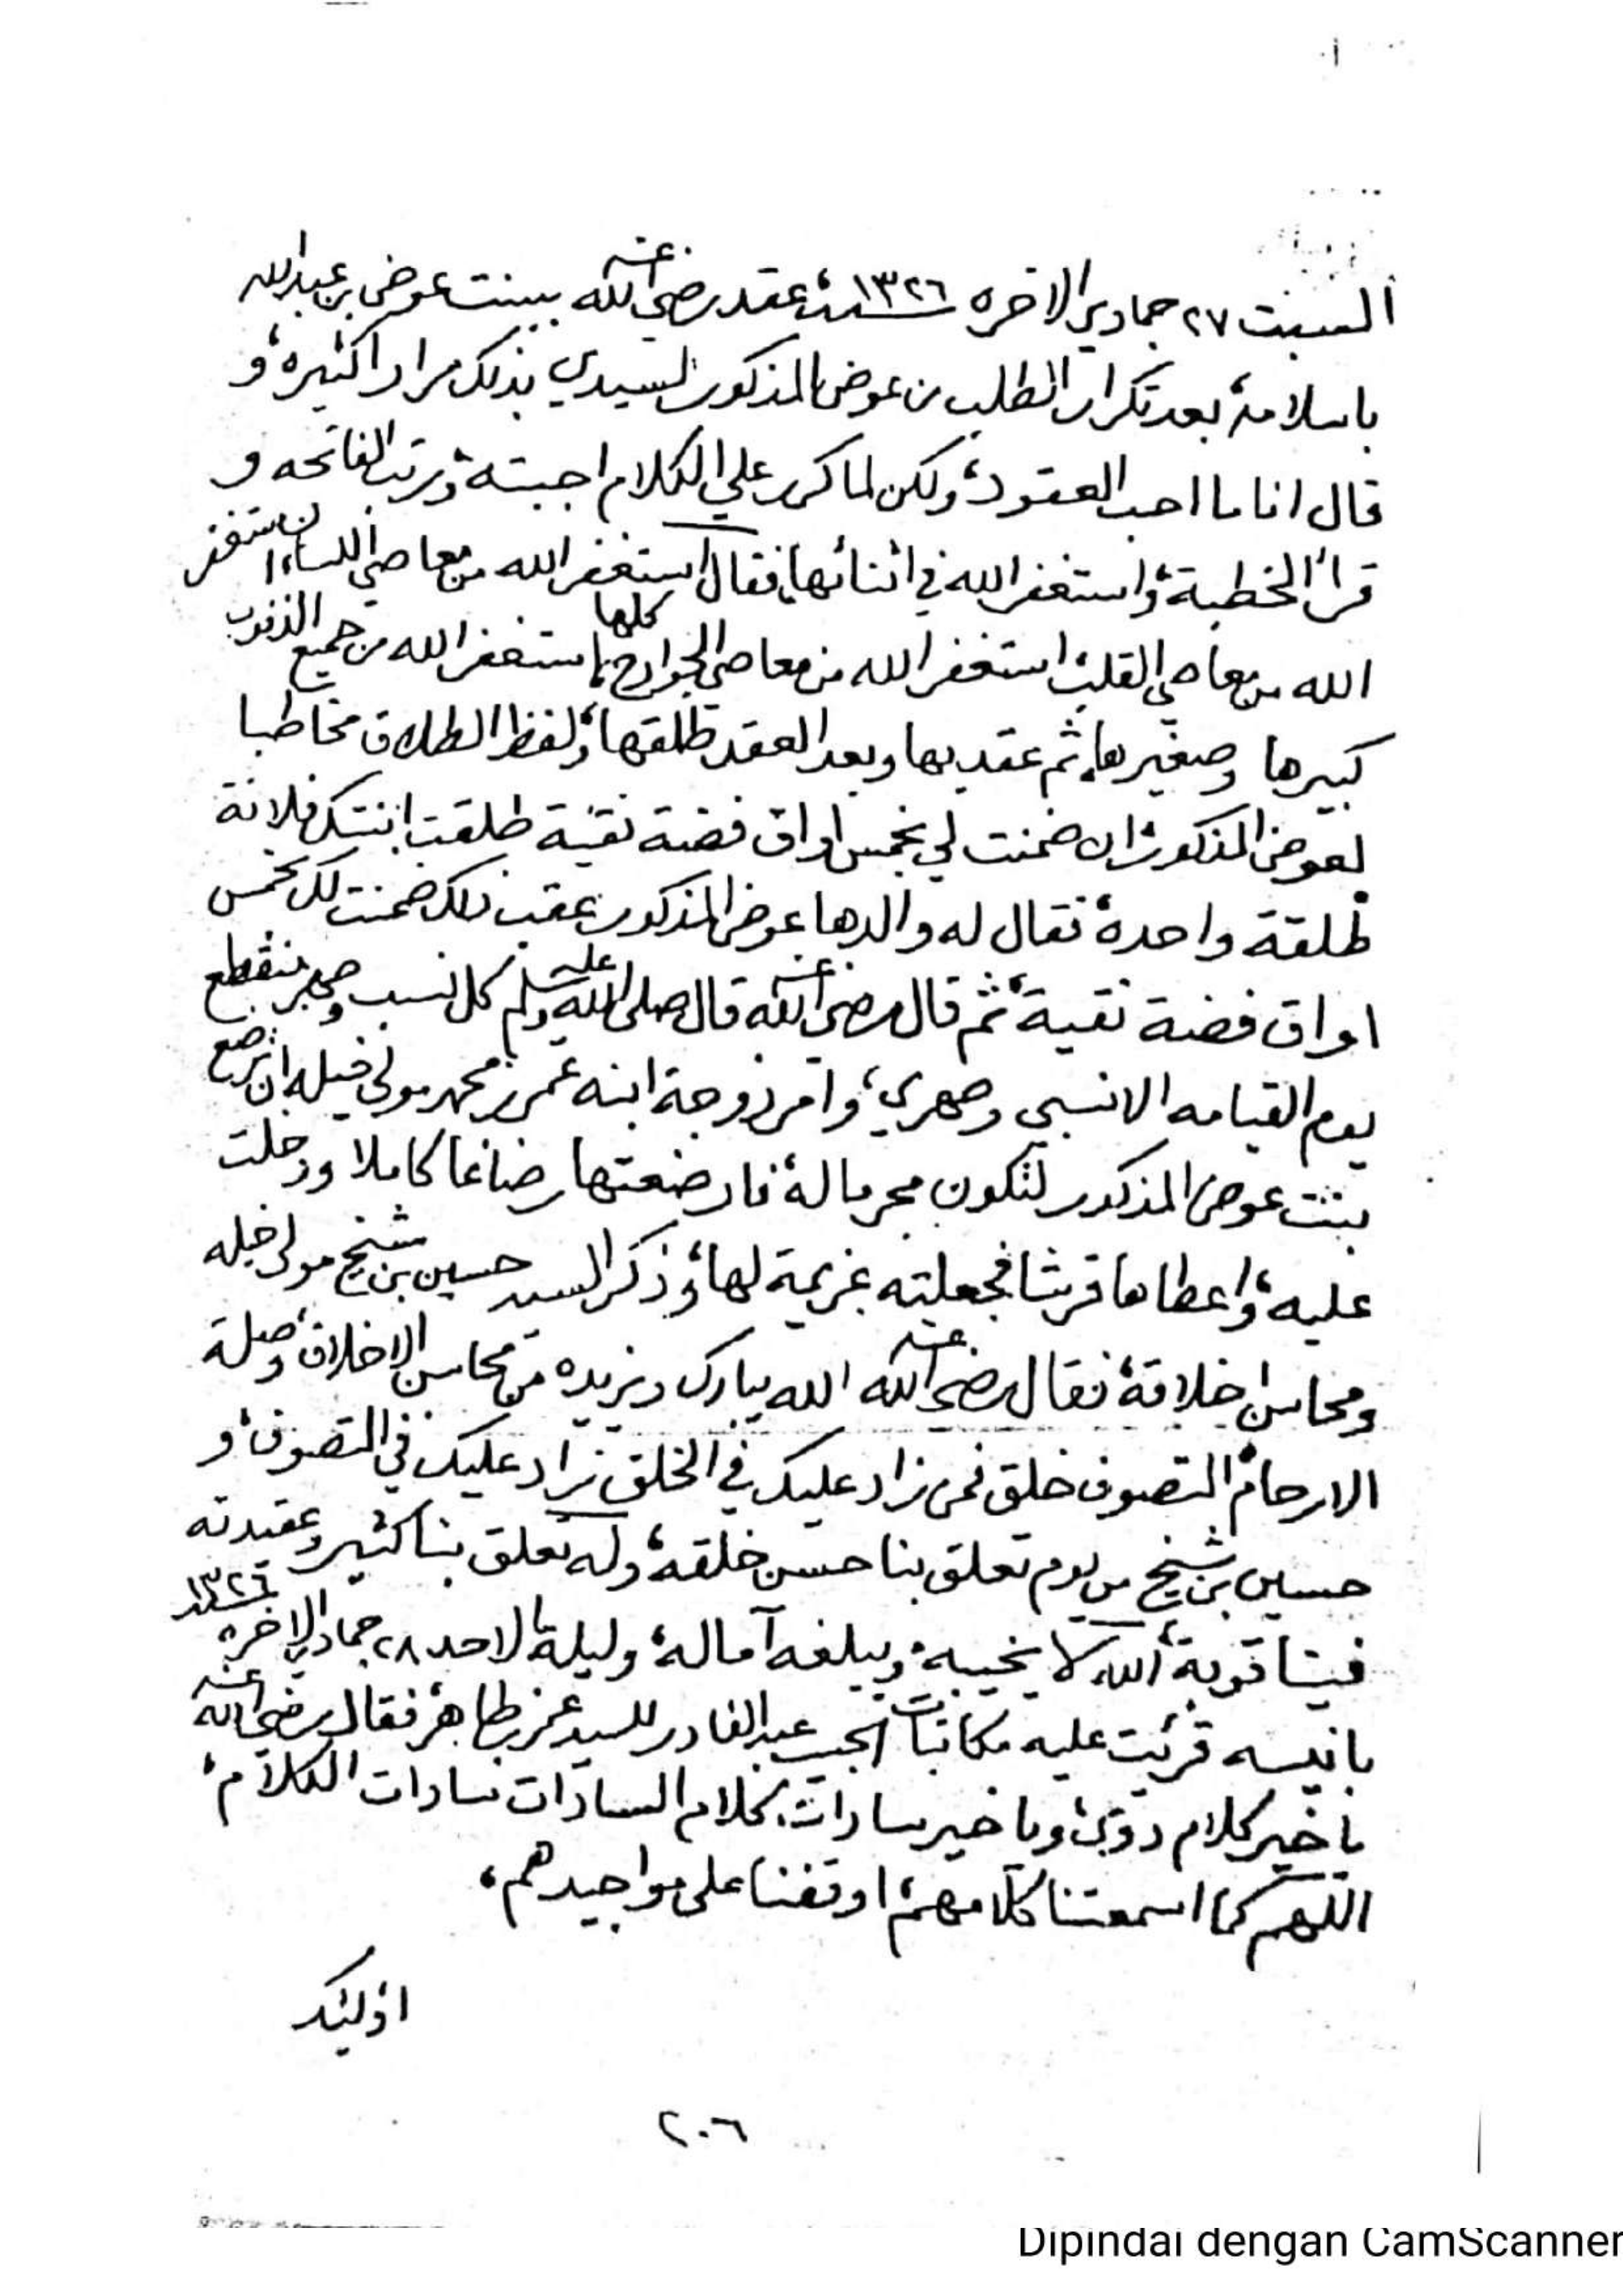 السبت ٢٧ جمادى الاخره سنة ١٣٢٦ عقد رضي الله عنه ببنت عوض بن عبدالله
باسلامة، بعد تكرار الطلب من عوض المذكور لسيدي بذلك مرارا كثيرة، و
قال انا ما احب العقود، ولكن لما كرر علي الكلام اجبته، ورتب الفاتحه و
قرأ الخطبة، واستغفر الله في اثنائها، فقال استغفر الله من معاصي اللسان، استغفر
الله من معاصي القلب، استغفر الله من معاصي الجوارح كلها، استغفر الله من جميع الذنوب
كبيرها وصغيرها، ثم عقد بها وبعد العقد طلقها، ولفظ الطلاق مخاطبا
لعوض المذكور، ان ضمنت لي بخمس اواق فضة نقية طلقت ابنتك فلانة
طلقة واحدة، فقال له والدها عوض المذكور عقب ذلك ضمنت لك بخمس
اواق فضة نقية، ثم قال رضي الله عنه قال صلى الله عليه وسلم كل نسب وصهر ينقطع
يوم القيامه الا نسبي وصهري، وامر زوجة ابنه عمر بن محمد مولى خيله ان ترضع
بنت عوض المذكور لتكون محرما له، فارضعتها رضاعا كاملا ودخلت
عليه، واعطاها قرشا فجعلته عزيمة لها، وذكر السيد حسين بن شيخ مولى خيله
ومحاسن اخلاقة، فقال رضي الله عنه الله يبارك ويزيده من محاسن الاخلاق، وصلة
الارحام، التصوف خلق فمن زاد عليك في الخلق زاد عليك في التصوف، و
حسين بن شيخ من يوم تعلق بنا حسن خلقه، وله تعلق بنا كثير وعقيدته
فينا قوية، الله لا يخيبه، ويبلغه آماله، وليلة الاحد ٢٨ جمادى الاخره سنة ١٣٢٦
بانيسه قرئت عليه مكاتبات الحبيب عبدالقادر للسيد عمر بن طاهر، فقال رضي الله عنه
يا خير كلام ذوق، ويا خير سادات، كلام السادات سادات الكلام،
اللهم كما اسمعتنا كلامهم، اوقفنا على مواجيدهم،
اولئك
٢٠٦
Dipindai dengan CamScanner